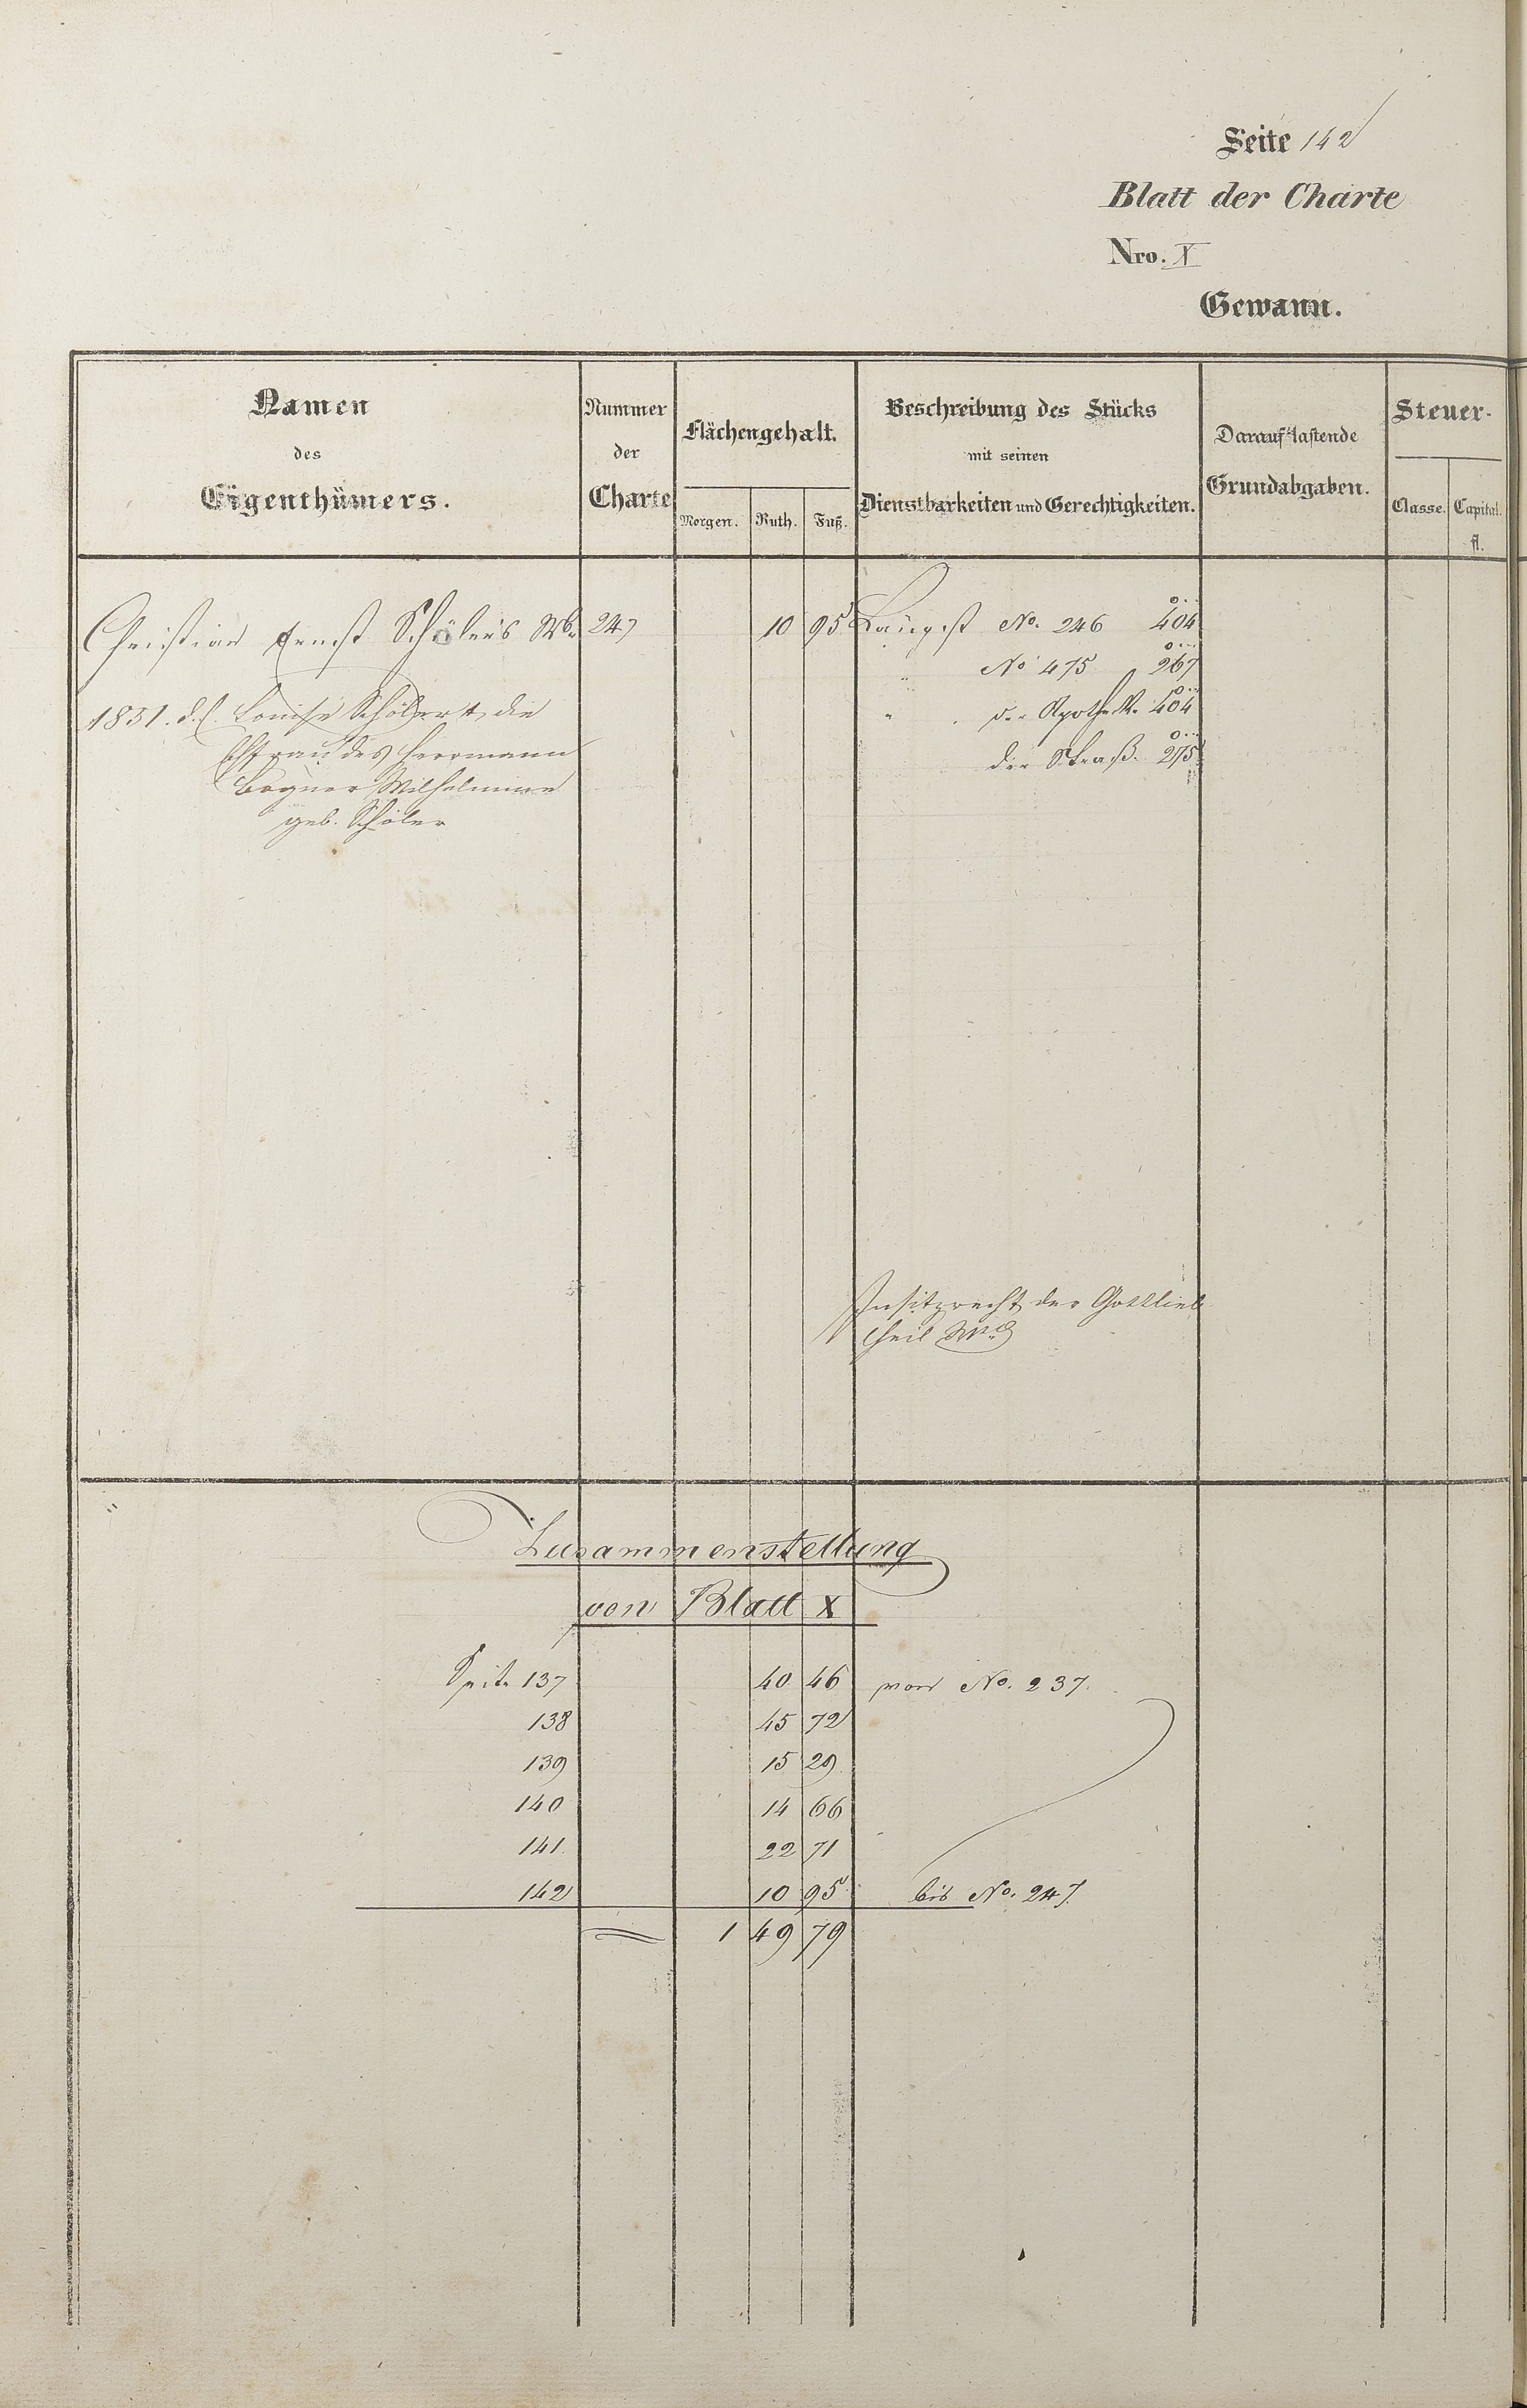 Seite 142
Blatt der Charte
Nro. X
Gewann.
Namen des Eigenthümers.
Nummer der Charte
Flächengehalt.
Morgen. Ruth. Fuß.
Beschreibung des Stücks mit seinen Dienstbarkeiten und Gerechtigkeiten.
Darauf lastende Grundabgaben.
Steuer-
Classe. Capital. fl.
Christian Ernst Schölers Wb. 247 10 95 Längst No. 246 404
" No 475 267
" der Apothek. 404
der Straß. 275
1851. d. l. Louise Schölert, die
Ehfrau des Herrmann
Wilhelmine
geb. Schöler
Insitzrecht der Gottlieb
Theil
Zusammenstellung
von Blatt X
Seite 137 40 46 von No. 237.
138 45 72
139 15 29
140 14 66
141. 22 71
142 10 95 bis No. 247.
1 49 79